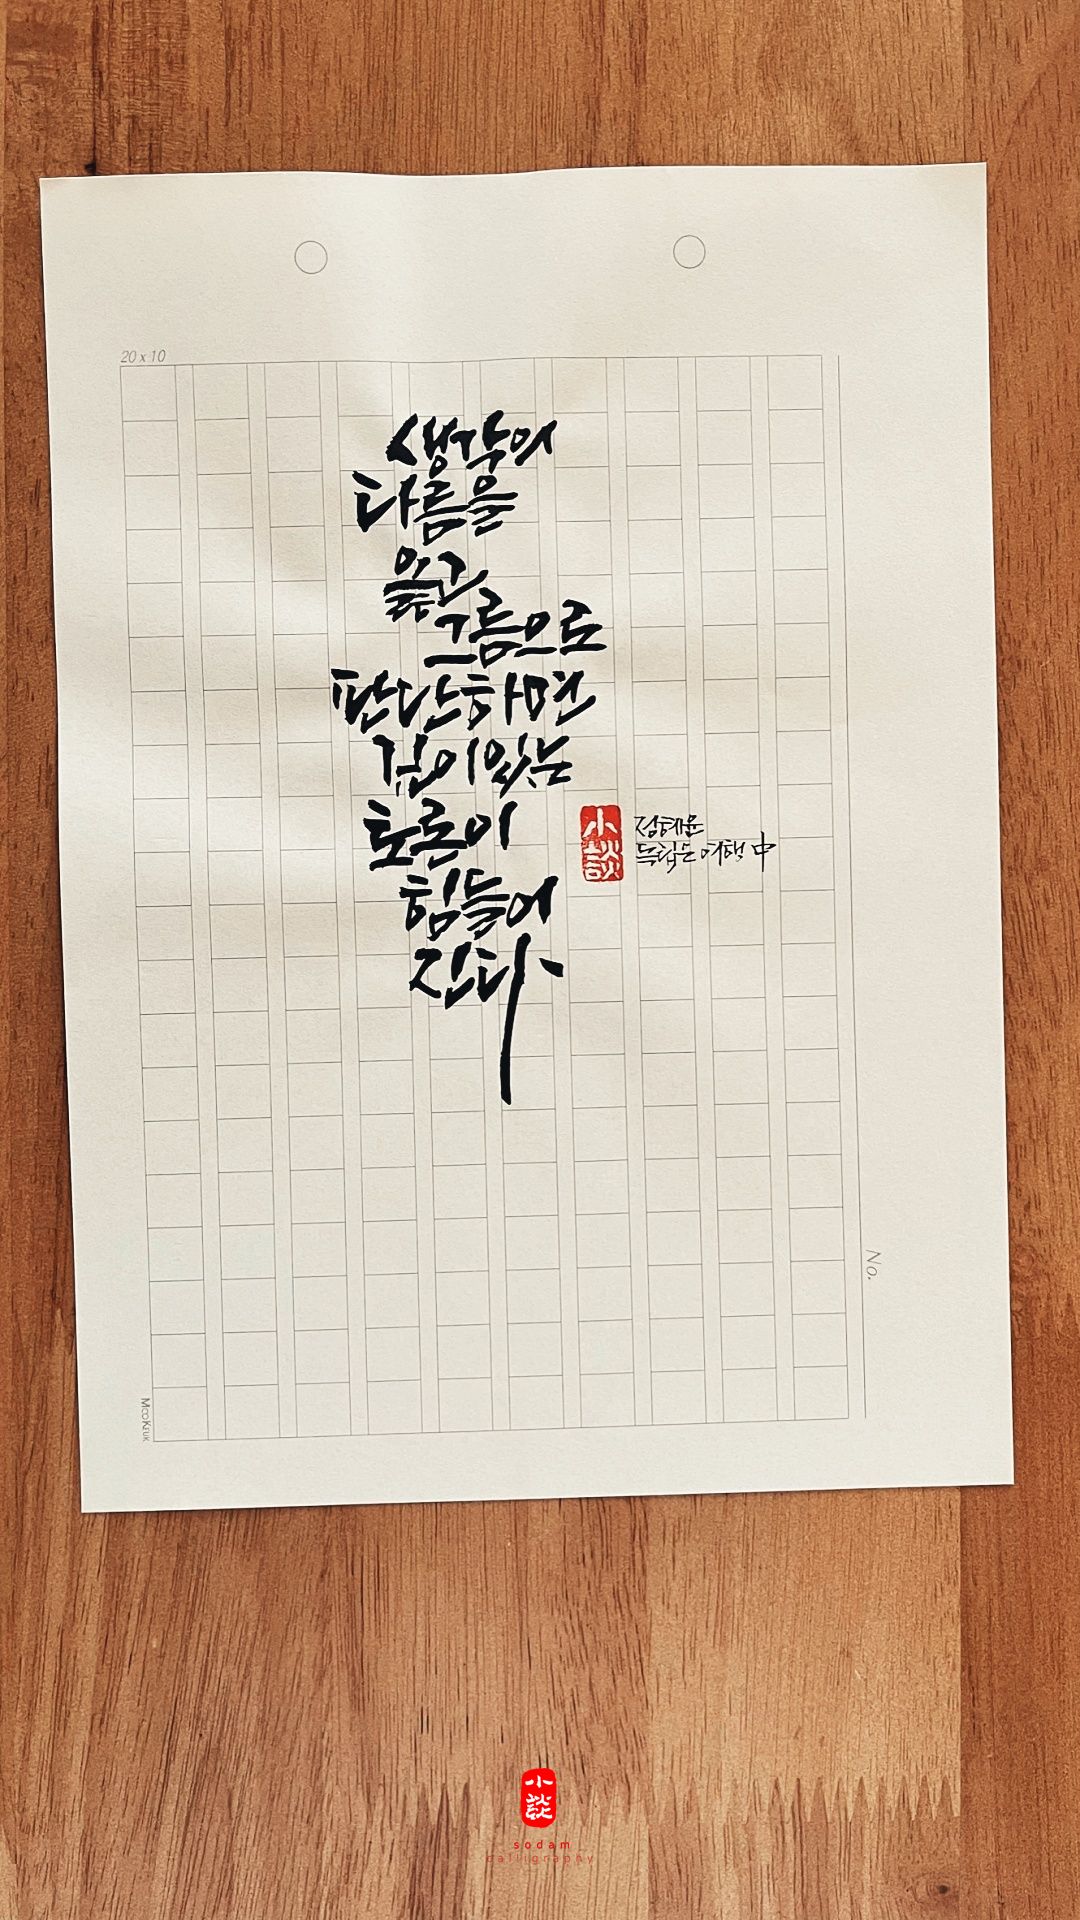 20 x 10
생각의
다름을
옳고
그름으로
판단하면
깊이있는
토론이
힘들어
진다
小談
정혜윤
독립은 여행 中
No.
MOOKEUK
小談
sodam
calligraphy